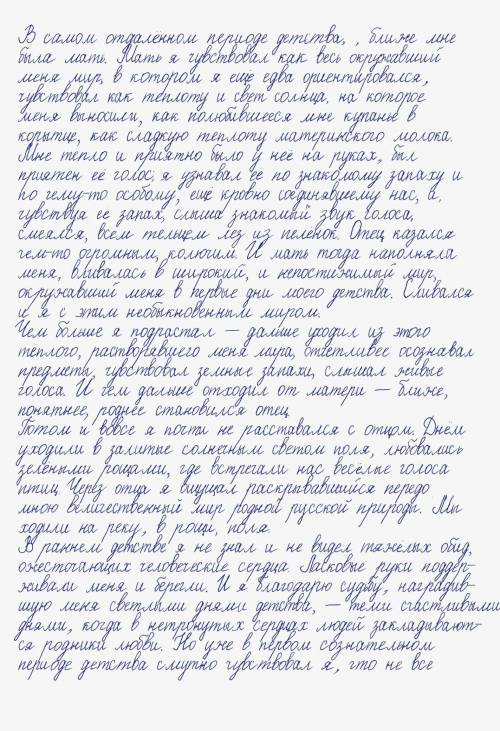 В самом отдалённом периоде детства, , ближе мне
была мать. Мать я чувствовал как весь окружавший
меня мир, в котором я еще едва ориентировался,
чувствовал как теплоту и свет солнца, на которое
меня выносили, как полюбившееся мне купанье в
корытце, как сладкую теплоту материнского молока.
Мне тепло и приятно было у неё на руках, был
приятен её голос; я узнавал ее по знакомому запаху и
по чему-то особому, ещё кровно соединявшему нас, а,
чувствуя ее запах, слыша знакомый звук голоса,
смеялся, всем тельцем лез из пеленок. Отец казался
чем-то огромным, колючим. И мать тогда наполняла
меня, вливалась в широкий, и непостижимый мир,
окружавший меня в первые дни моего детства. Сливался
и я с этим необыкновенным миром.
Чем больше я подрастал — дальше уходил из этого
теплого, растворявшего меня мира, отчетливее осознавал
предметы, чувствовал земные запахи, слышал живые
голоса. И чем дальше отходил от матери — ближе,
понятнее, роднее становился отец.
Потом и вовсе я почти не расставался с отцом. Днём
уходили в залитые солнечным светом поля, любовались
зелеными рощами, где встречали нас весёлые голоса
птиц. Через отца я ощущал раскрывавшийся передо
мною величественный мир родной русской природы. Мы
ходили на реку, в рощи, поля.
В раннем детстве я не знал и не видел тяжелых обид,
ожесточающих человеческие сердца. Ласковые руки поддер-
живали меня и берегли. И я благодарю судьбу, наградив-
шую меня светлыми днями детства, — теми счастливыми
днями, когда в нетронутых сердцах людей закладывают-
ся родники любви. Но уже в первом сознательном
периоде детства смутно чувствовал я, что не все